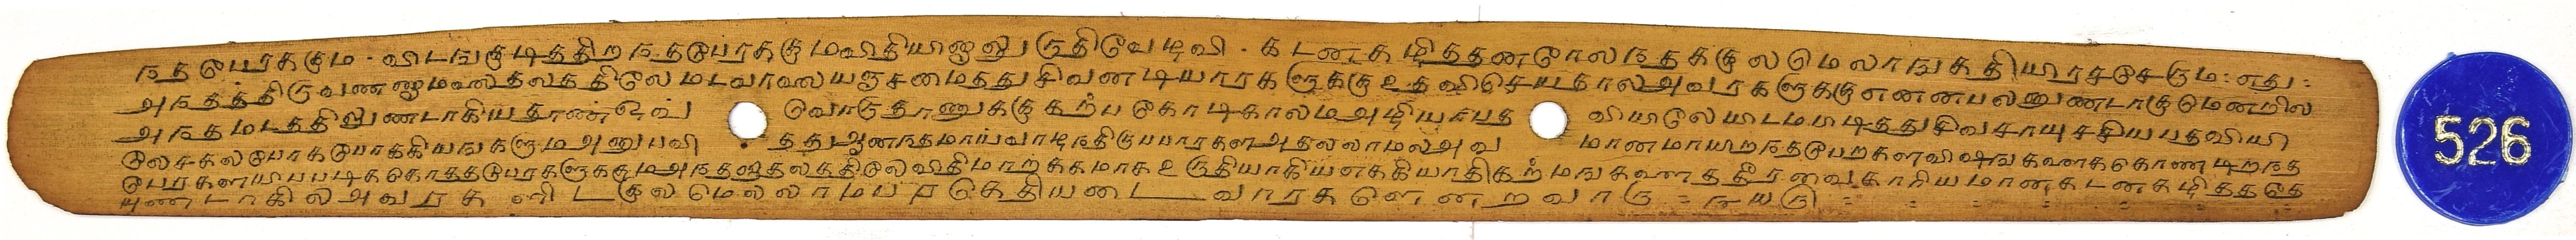 ந்தபேரக்கும - விடஙகுடித்திறந்தபேரக்குமவிதியிலுலுருதிவேடிவி - கடனகழித்தணமேலநதககுலமெலாஙகதியிரசசேரும: எது:
அந்தத்திருவணணாமலைதலத்திலேமடவாலையஞ்சமைத்துசிவனடியாரகளுக்குஉதவிசெயதாலஅவரகளுக்குஎனனபலனுணடாகுமெனறில
அந்தமடத்திலுணடாகிய வொருதூணுக்குகற்பகோடிகாலமஅழியாபத வியிலேயிடமபிடித்துசிவசாயுசசியபதவியி
லேசகலபோகபோககியஙகளுமஅனுபவி தது ஆனநதமாயவாழநதிருபபாரகளஅதலலாமலஅவ மானமாயிறநதபேரகளவிஷஙகளைககொணடிறநத
பேரகளயிபபடிககொததபேரகளுககுமஅநதஸதலததிலேவிதிமாறககமாகஉருதியாகியளககியாதிகறமஙகளைததீரவைகாரியமானகடனகழிததத
யுணடாகிலஅவரகளிடகுலமெலலாமபரகெதியடைவாரகளெனறவாறு
526